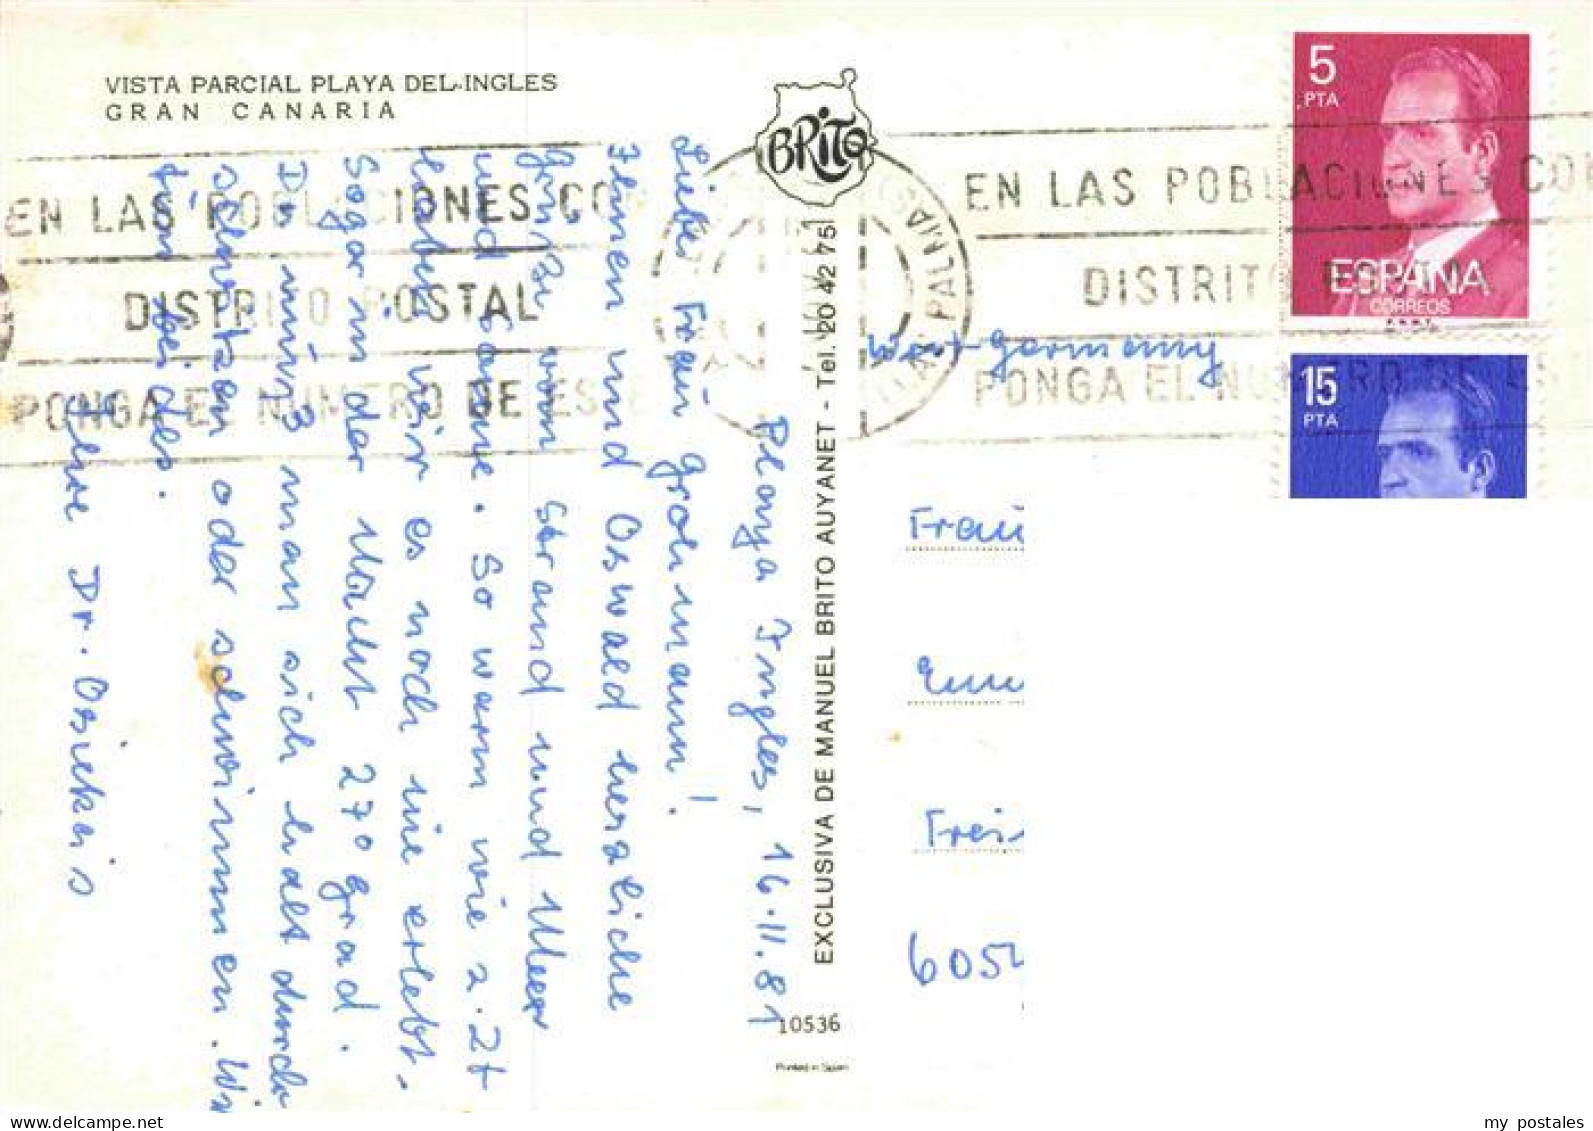 VISTA PARCIAL PLAYA DEL INGLES
GRAN CANARIA
BRITO
EN LAS POBLACIONES CO
DISTRITO POSTAL
PONGA EL NUMERO DE ES
EN LAS POBLACIONES CON
DISTRITO POSTAL
PONGA EL NUMERO DE ES
PALMAS
5
PTA
ESPAÑA
CORREOS
15
PTA
EXCLUSIVA DE MANUEL BRITO AUYANET - Tel. 20 42 75
10536
Printed in Spain
Playa Ingles, 16.11.81
Liebe Frau Grohmann!
Ihnen und Oswald herzliche
Grüße vom Strand und Meer
und Sonne. So warm wie z. Zt
haben wir es noch nie erlebt.
Sogar in der Nacht 27° Grad.
Da muß man sich halt durch
schwitzen oder schwimmen. Wir
tun beides.
Ihre Dr.
West-Germany
Frau
Frei
605
my postales
delcampe.net